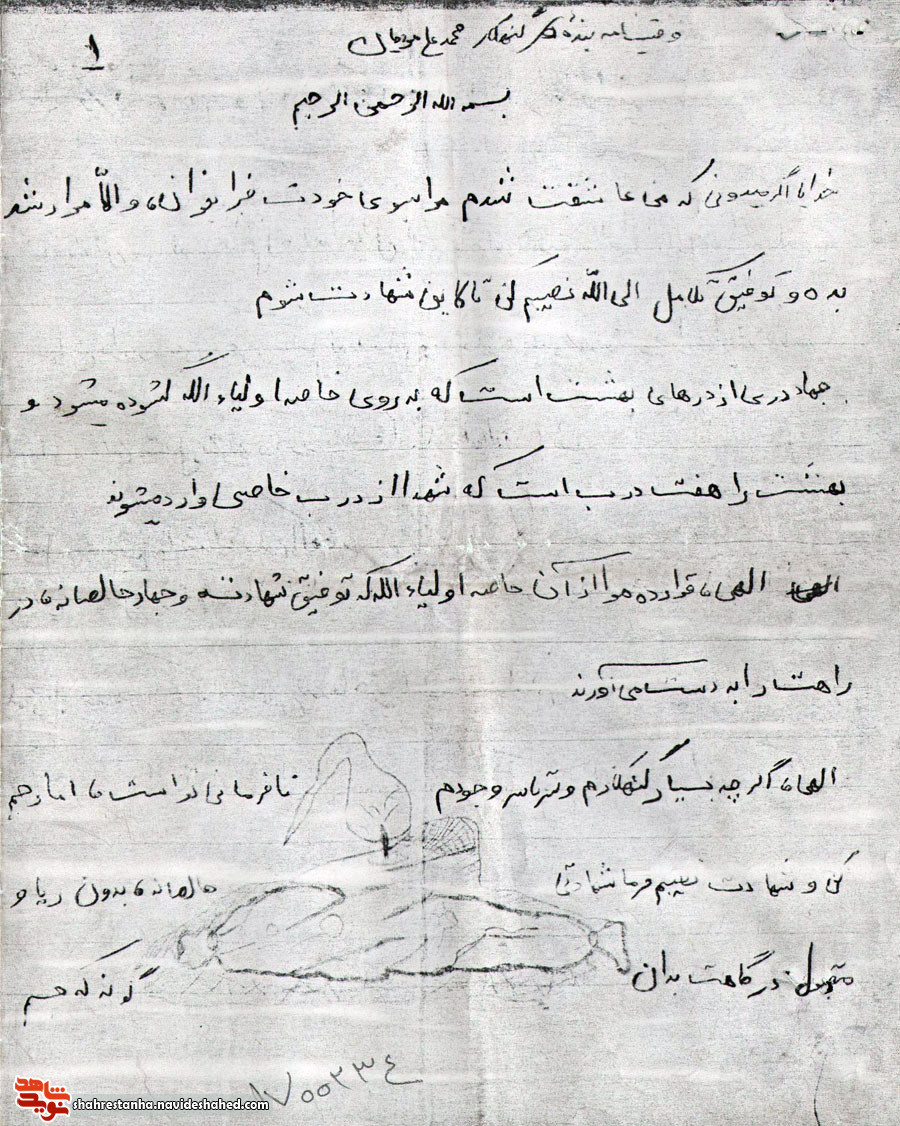 وصیتنامه بنده گنهکار محمد علی
۱
بسمه الله الرحمن الرحیم
خدایا اگر میدونی که من عاشقت شدم مرا بسوی خودت فرا بخوان، و الّا مرا رشد
بده و توفیق تکامل الی الله نصیبم کن تا لایق شهادت شوم
جهاد دری از درهای بهشت است که به روی خاصه اولیاء الله گشوده میشود و
بهشت را هفت درب است که شهدا از درب خاصی وارد میشوند
الهی، قرار ده مرا از آن خاصه اولیاء الله که توفیق شهادت و جهاد خالصانه، در
راهت را به دست می آورند
الهی، اگر چه بسیار گنهکارم و سرتاسر وجودم نافرمانی تو است، اما رحم
کن و شهادت نصیبم فرما شهادتی خالصانه، بدون ریا و
مقبول درگاهت بدان گونه که جسم
۱۷۰۰۲۳۴
نوید شاهد
shahrestanha.navideshahed.com